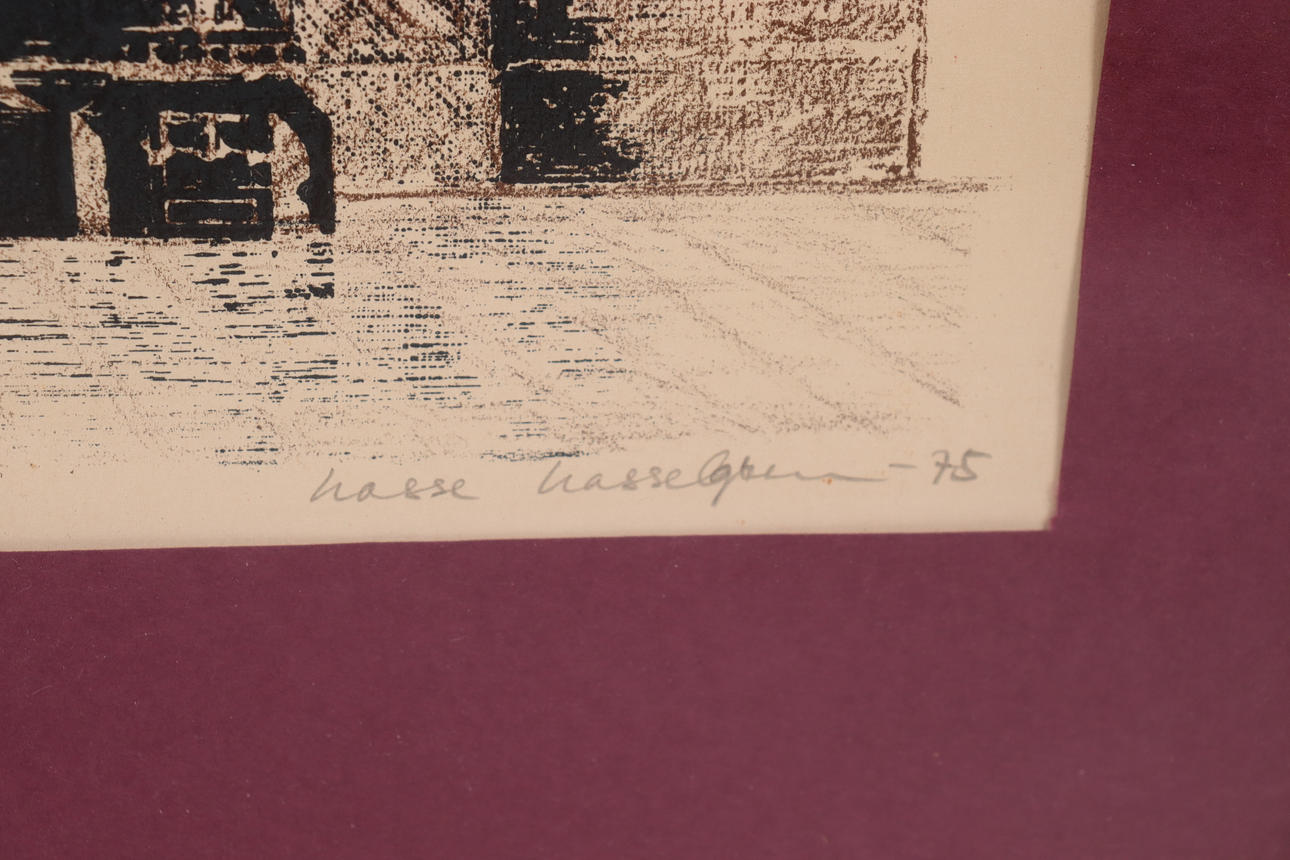 hasse hasselgren -75